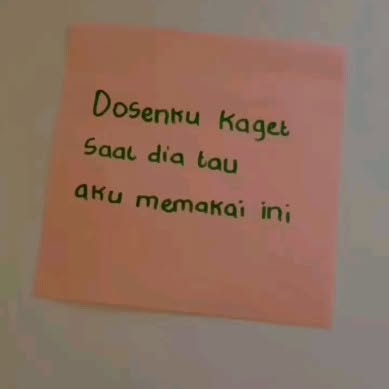 Dosenku kaget
saat dia tau
aku memakai ini